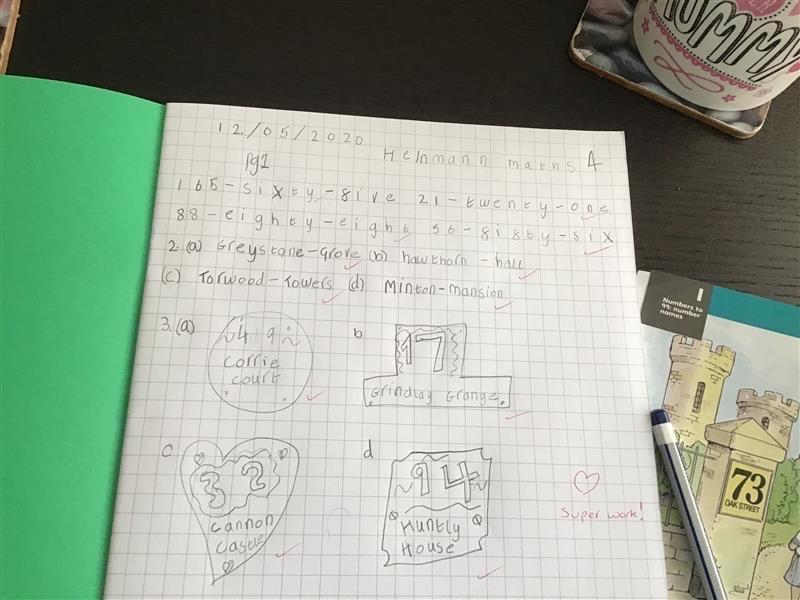 MUMMY
12/05/2020
Pg1 Heinmann maths 4
1 65-sixty-five 21-twenty-one
88-eighty-eight 56-fifty-six
2. (a) Greystone-Grove (b) hawthorn-hall
(c) Torwood-Towers (d) Minton-mansion
3. (a) ~49~
corrie
court
b 17
Grindlay Grange
c 32
Cannon
Castle
d ~94~
Huntly
House
Super work!
1
Numbers to
99: number
names
73
OAK STREET